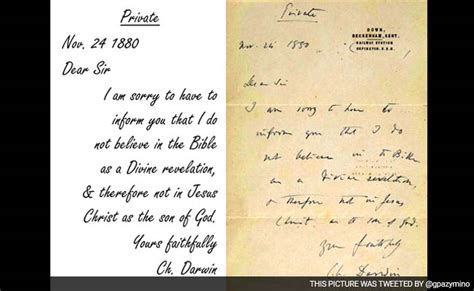 Private
Nov. 24 1880
Dear Sir
I am sorry to have to
inform you that I do
not believe in the Bible
as a Divine revelation,
& therefore not in Jesus
Christ as the son of God.
Yours faithfully
Ch. Darwin
Private
DOWN,
BECKENHAM, KENT.
RAILWAY STATION
ORPINGTON. S.E.R.
Nov. 24 1880
Dear Sir
I am sorry to have to
inform you that I do
not believe in the Bible
as a divine revelation,
& therefore not in Jesus
Christ as the son of God.
Yours faithfully
Ch. Darwin
THIS PICTURE WAS TWEETED BY @gpazymino